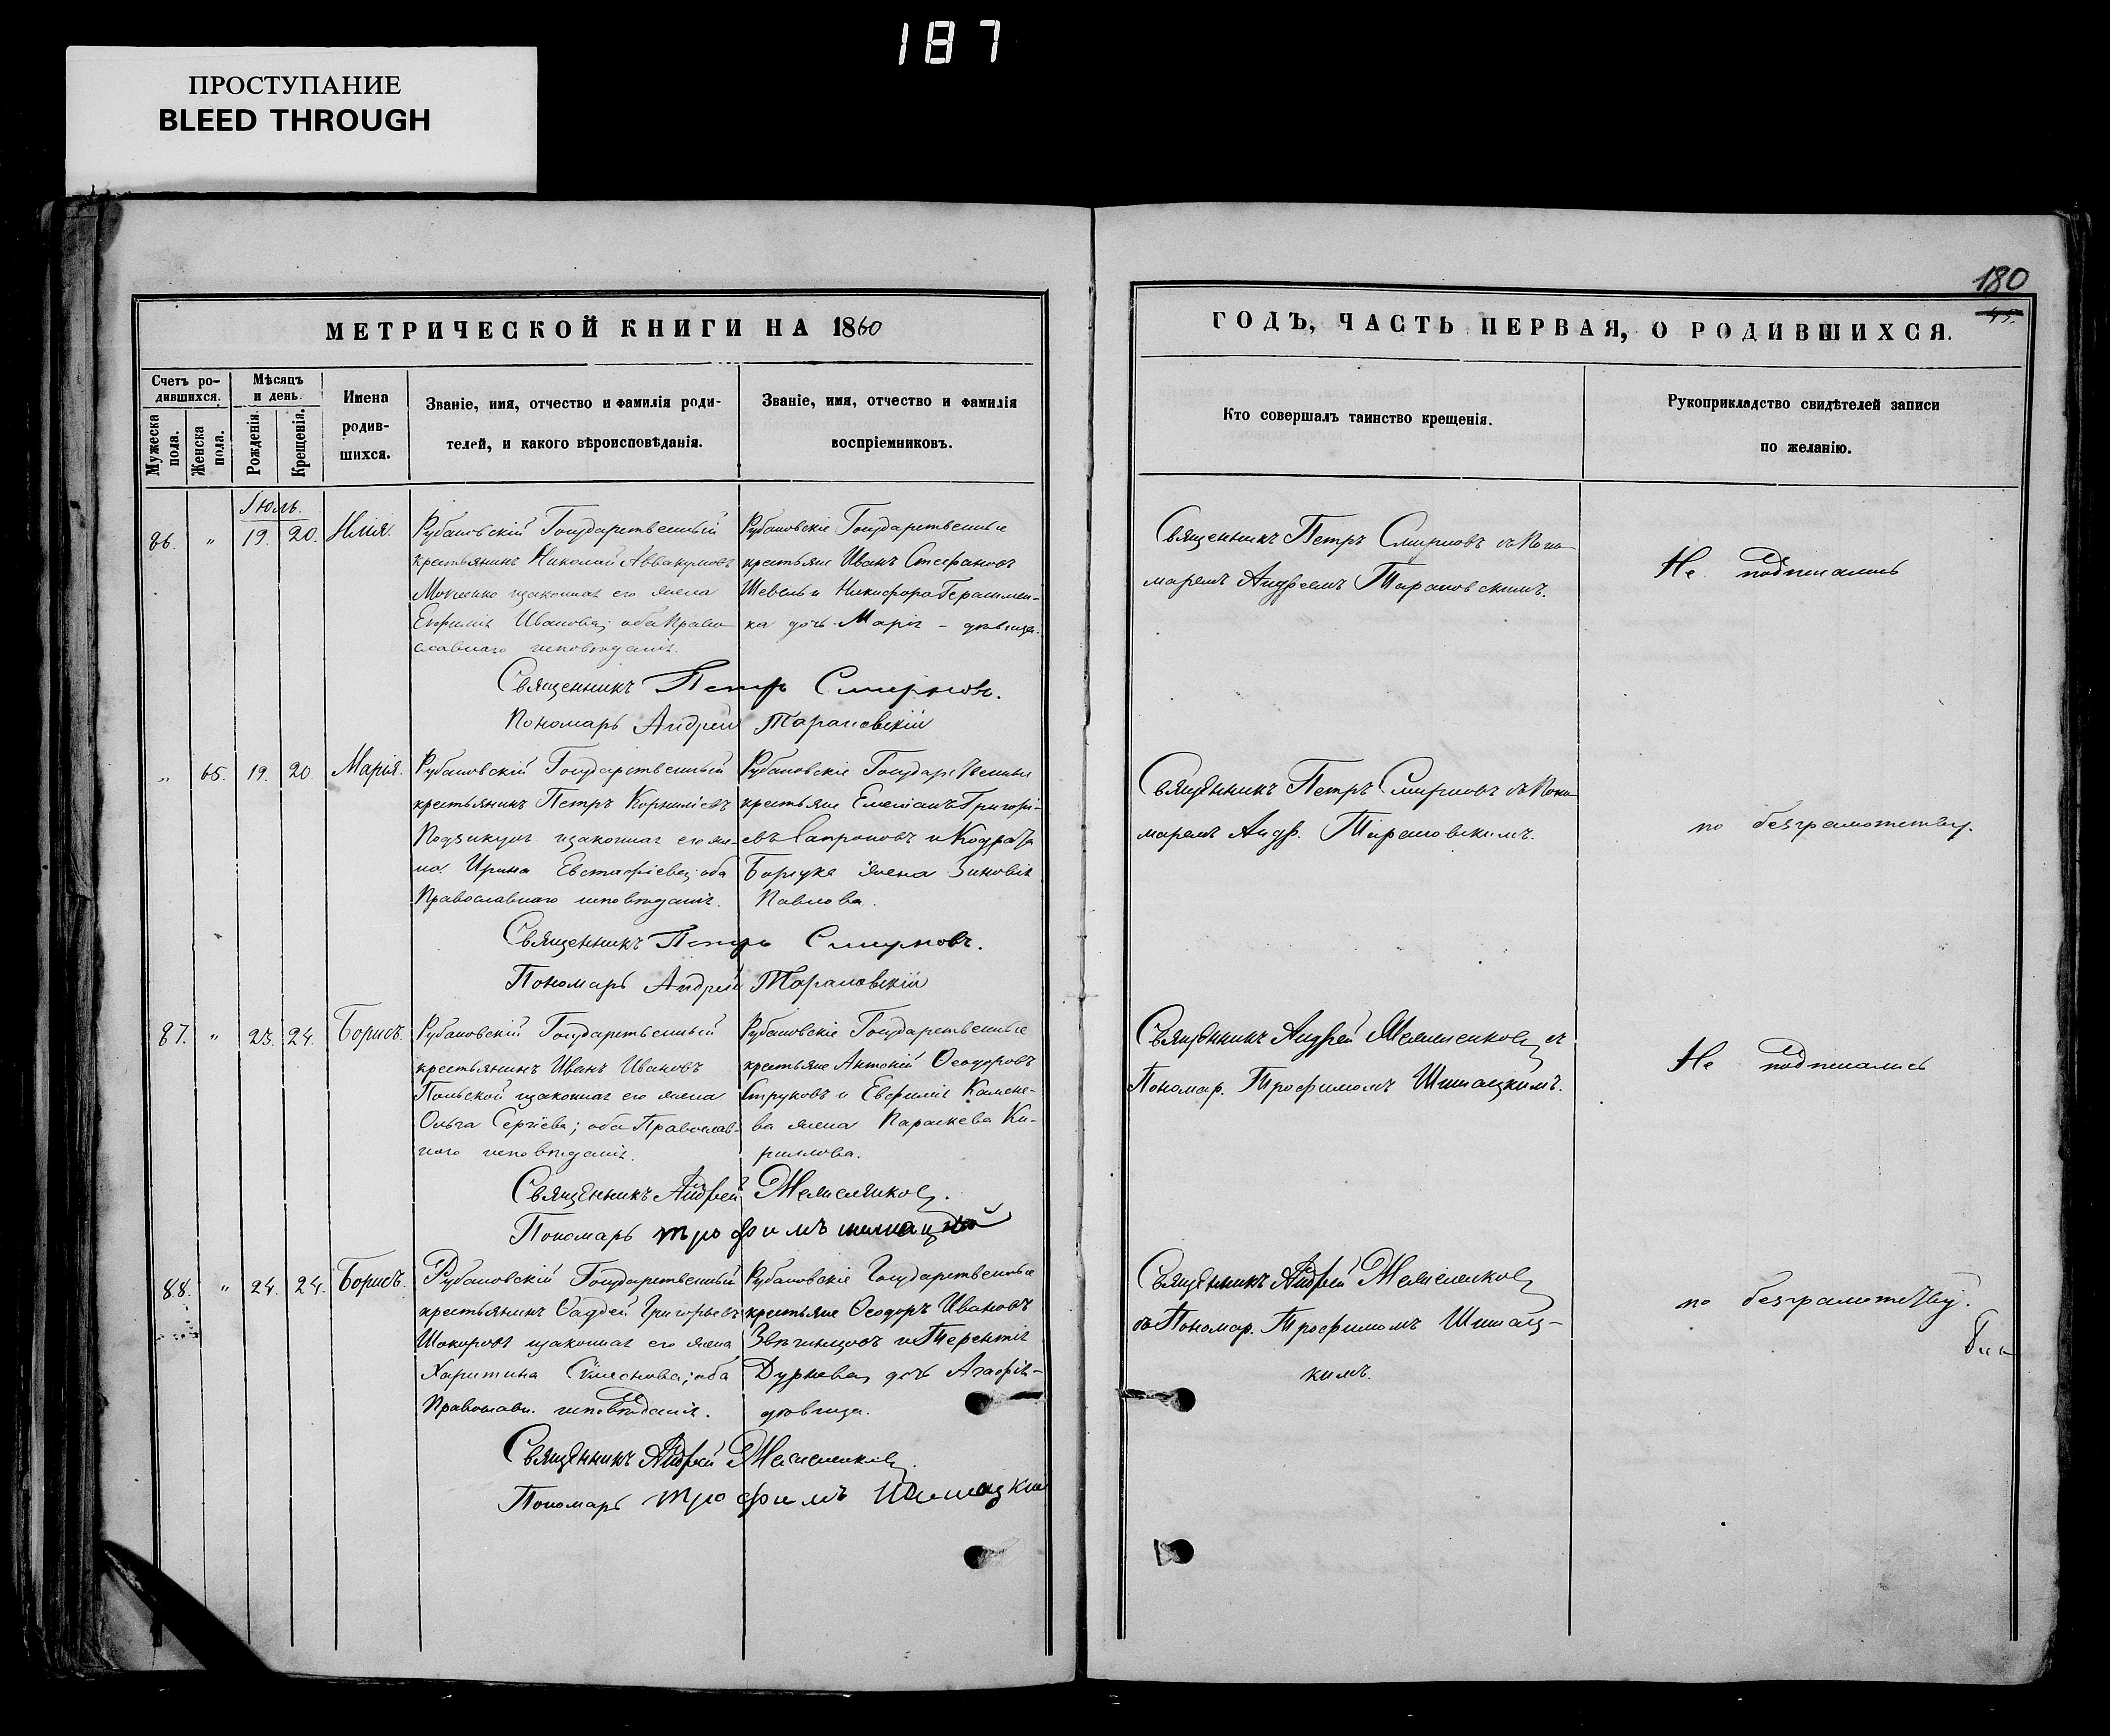 187
ПРОСТУПАНИЕ
BLEED THROUGH
180
45.
МЕТРИЧЕСКОЙ КНИГИ НА 1860
Счетъ ро-
дившихся.
Мужеска
пола.
Женска
пола.
Мѣсяцъ
и день.
Рожденія.
Крещенія.
Имена
родив-
шихся.
Званіе, имя, отчество и фамилія роди-
телей, и какого вѣроисповѣданія.
Званіе, имя, отчество и фамилія
воспріемниковъ.
Іюль.
86. " 19. 20. Илія.
Рубановскій Государственный
крестьянинъ Николай Аввакумовъ
изаконная его жена
Евфимія Иванова; оба Право
славнаго исповѣданія.
Рубановскіе Государственные
крестьяне Иванъ Стефановъ
Шевель и Никифора Герасимен-
ка дочь Марія - дѣвица.
Священникъ Петръ Смирновъ.
Пономарь Андрей Тарановскій
" 65. 19. 20. Марія.
Рубановскій Государственный
крестьянинъ Петръ Корниліевъ
изаконная его же-
на Ирина Евстафіева; оба
Православнаго исповѣданія.
Рубановскіе Государственные
крестьяне Емеліанъ Григорі-
евъ Сапроновъ и Кодрата
жена Зиновія
Павлова.
Священникъ Петръ Смирновъ.
Пономарь Андрей Тарановскій
87. " 23. 24. Борисъ.
Рубановскій Государственный
крестьянинъ Иванъ Ивановъ
Польской изаконная его жена
Ольга Сергіева; оба Православ-
наго исповѣданія.
Рубановскіе Государственные
крестьяне Антоній Ѳеодоровъ
Струковъ и Евфимія Камене-
ва жена Параскева Ки-
риллова.
Священникъ Андрей
Пономарь Трофимъ Шишацкой
88. " 24. 24. Борисъ.
Рубановскій Государственный
крестьянинъ Ѳаддей Григорьевъ
изаконная его жена
Харитина Сѵмеонова; оба
Православн. исповѣданія.
Рубановскіе Государственные
крестьяне Ѳеодоръ Ивановъ
Звягинцовъ и Терентія
Дурнева дочь Агафія-
дѣвица.
Священникъ Андрей
Пономарь Трофимъ Шишацкій
ГОДЪ, ЧАСТЬ ПЕРВАЯ, О РОДИВШИХСЯ.
Кто совершалъ таинство крещенія.
Рукоприкладство свидѣтелей записи
по желанію.
Священникъ Петръ Смирновъ съ Поно
маремъ Андреемъ Тарановскимъ.
Не подписались
Священникъ Петръ Смирновъ съ Поно
маремъ Андр. Тарановскимъ.
по безграмотству.
Священникъ Андрей съ
Пономар. Трофимомъ Шишацкимъ.
Не подписались
Священникъ Андрей
съ Пономар. Трофимомъ Шишац-
кимъ.
по безграмотству.